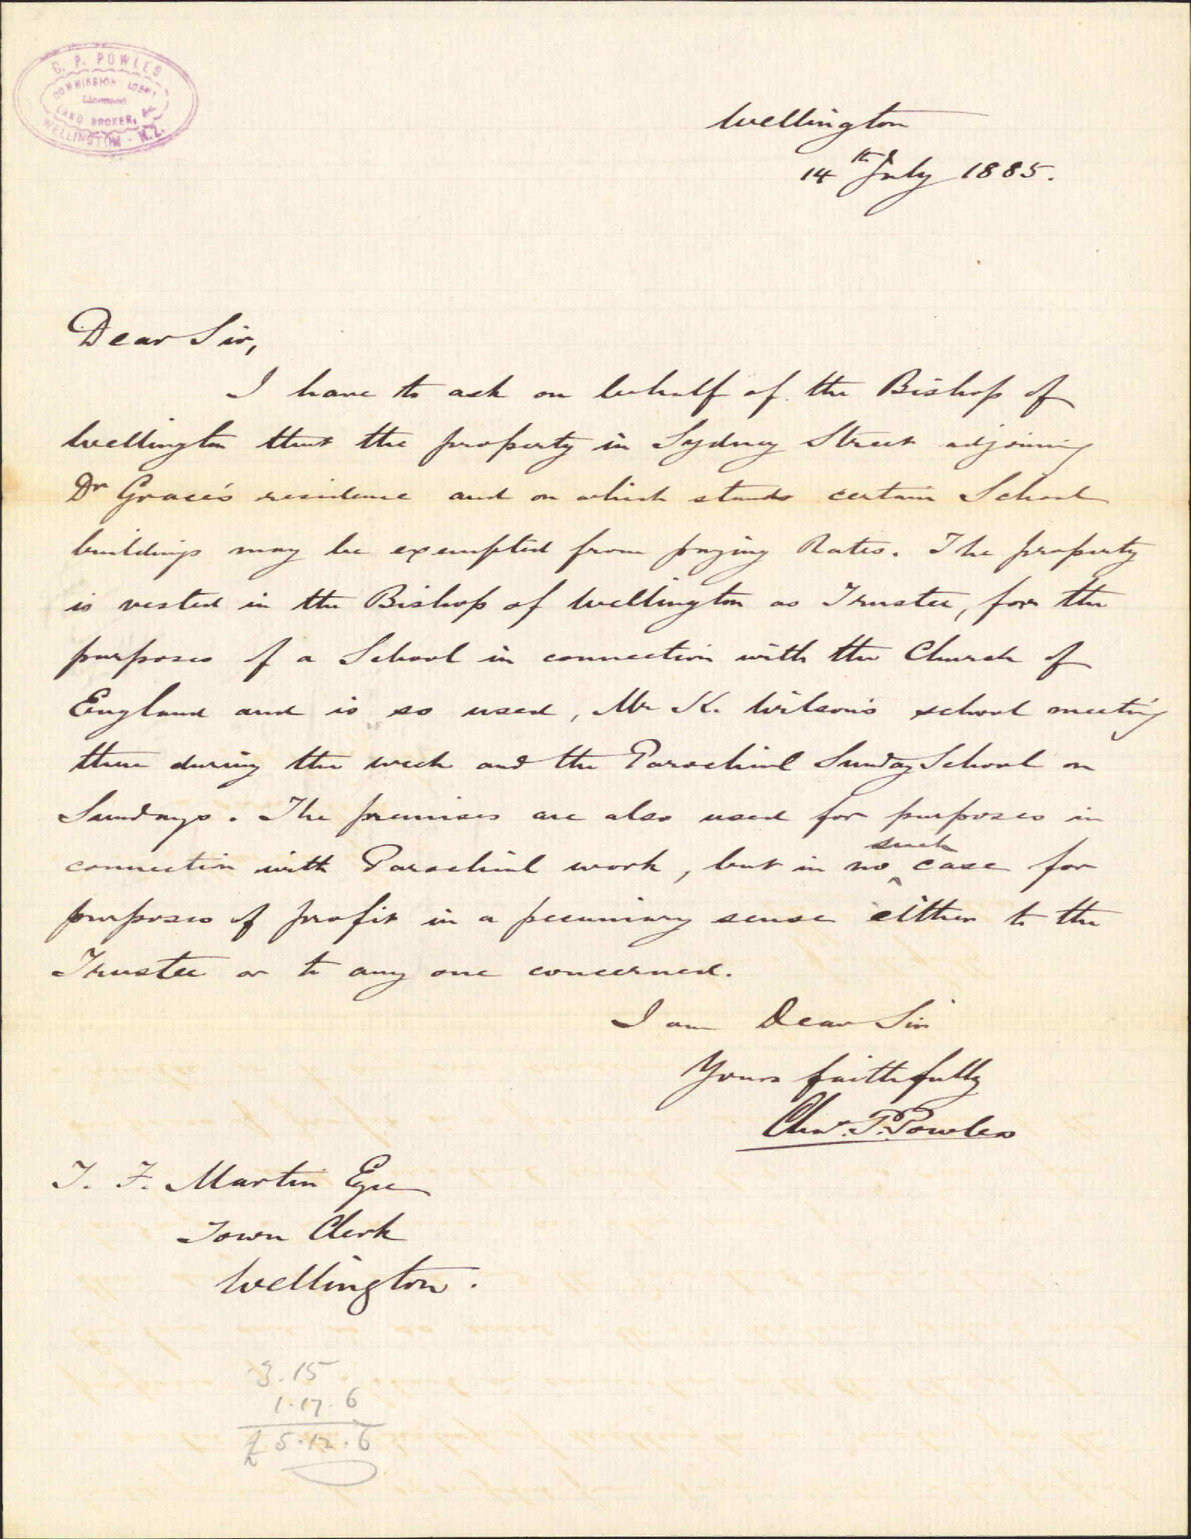 C. P. POWLES
COMMISSION AGENT
Licensed
LAND BROKER, &c
WELLINGTON - N.Z.
Wellington
14th July 1885.
Dear Sir,
I have to ask on behalf of the Bishop of
Wellington that the property in Sydney Street adjoining
Dr Grace's residence and on which stands certain School
buildings may be exempted from paying Rates. The property
is vested in the Bishop of Wellington as Trustee, for the
purposes of a School in connection with the Church of
England and is so used, Mr K. Wilson's school meeting
there during the week and the Parochial Sunday School on
Sundays. The premises are also used for purposes in
connection with Parochial work, but in no such case for
purposes of profit in a pecuniary sense either to the
Trustee or to any one concerned.
I am Dear Sir
Yours faithfully
Chas. P. Powles
T. F. Martin Esqre
Town Clerk
Wellington.
3.15
1.17.6
£5.12.6